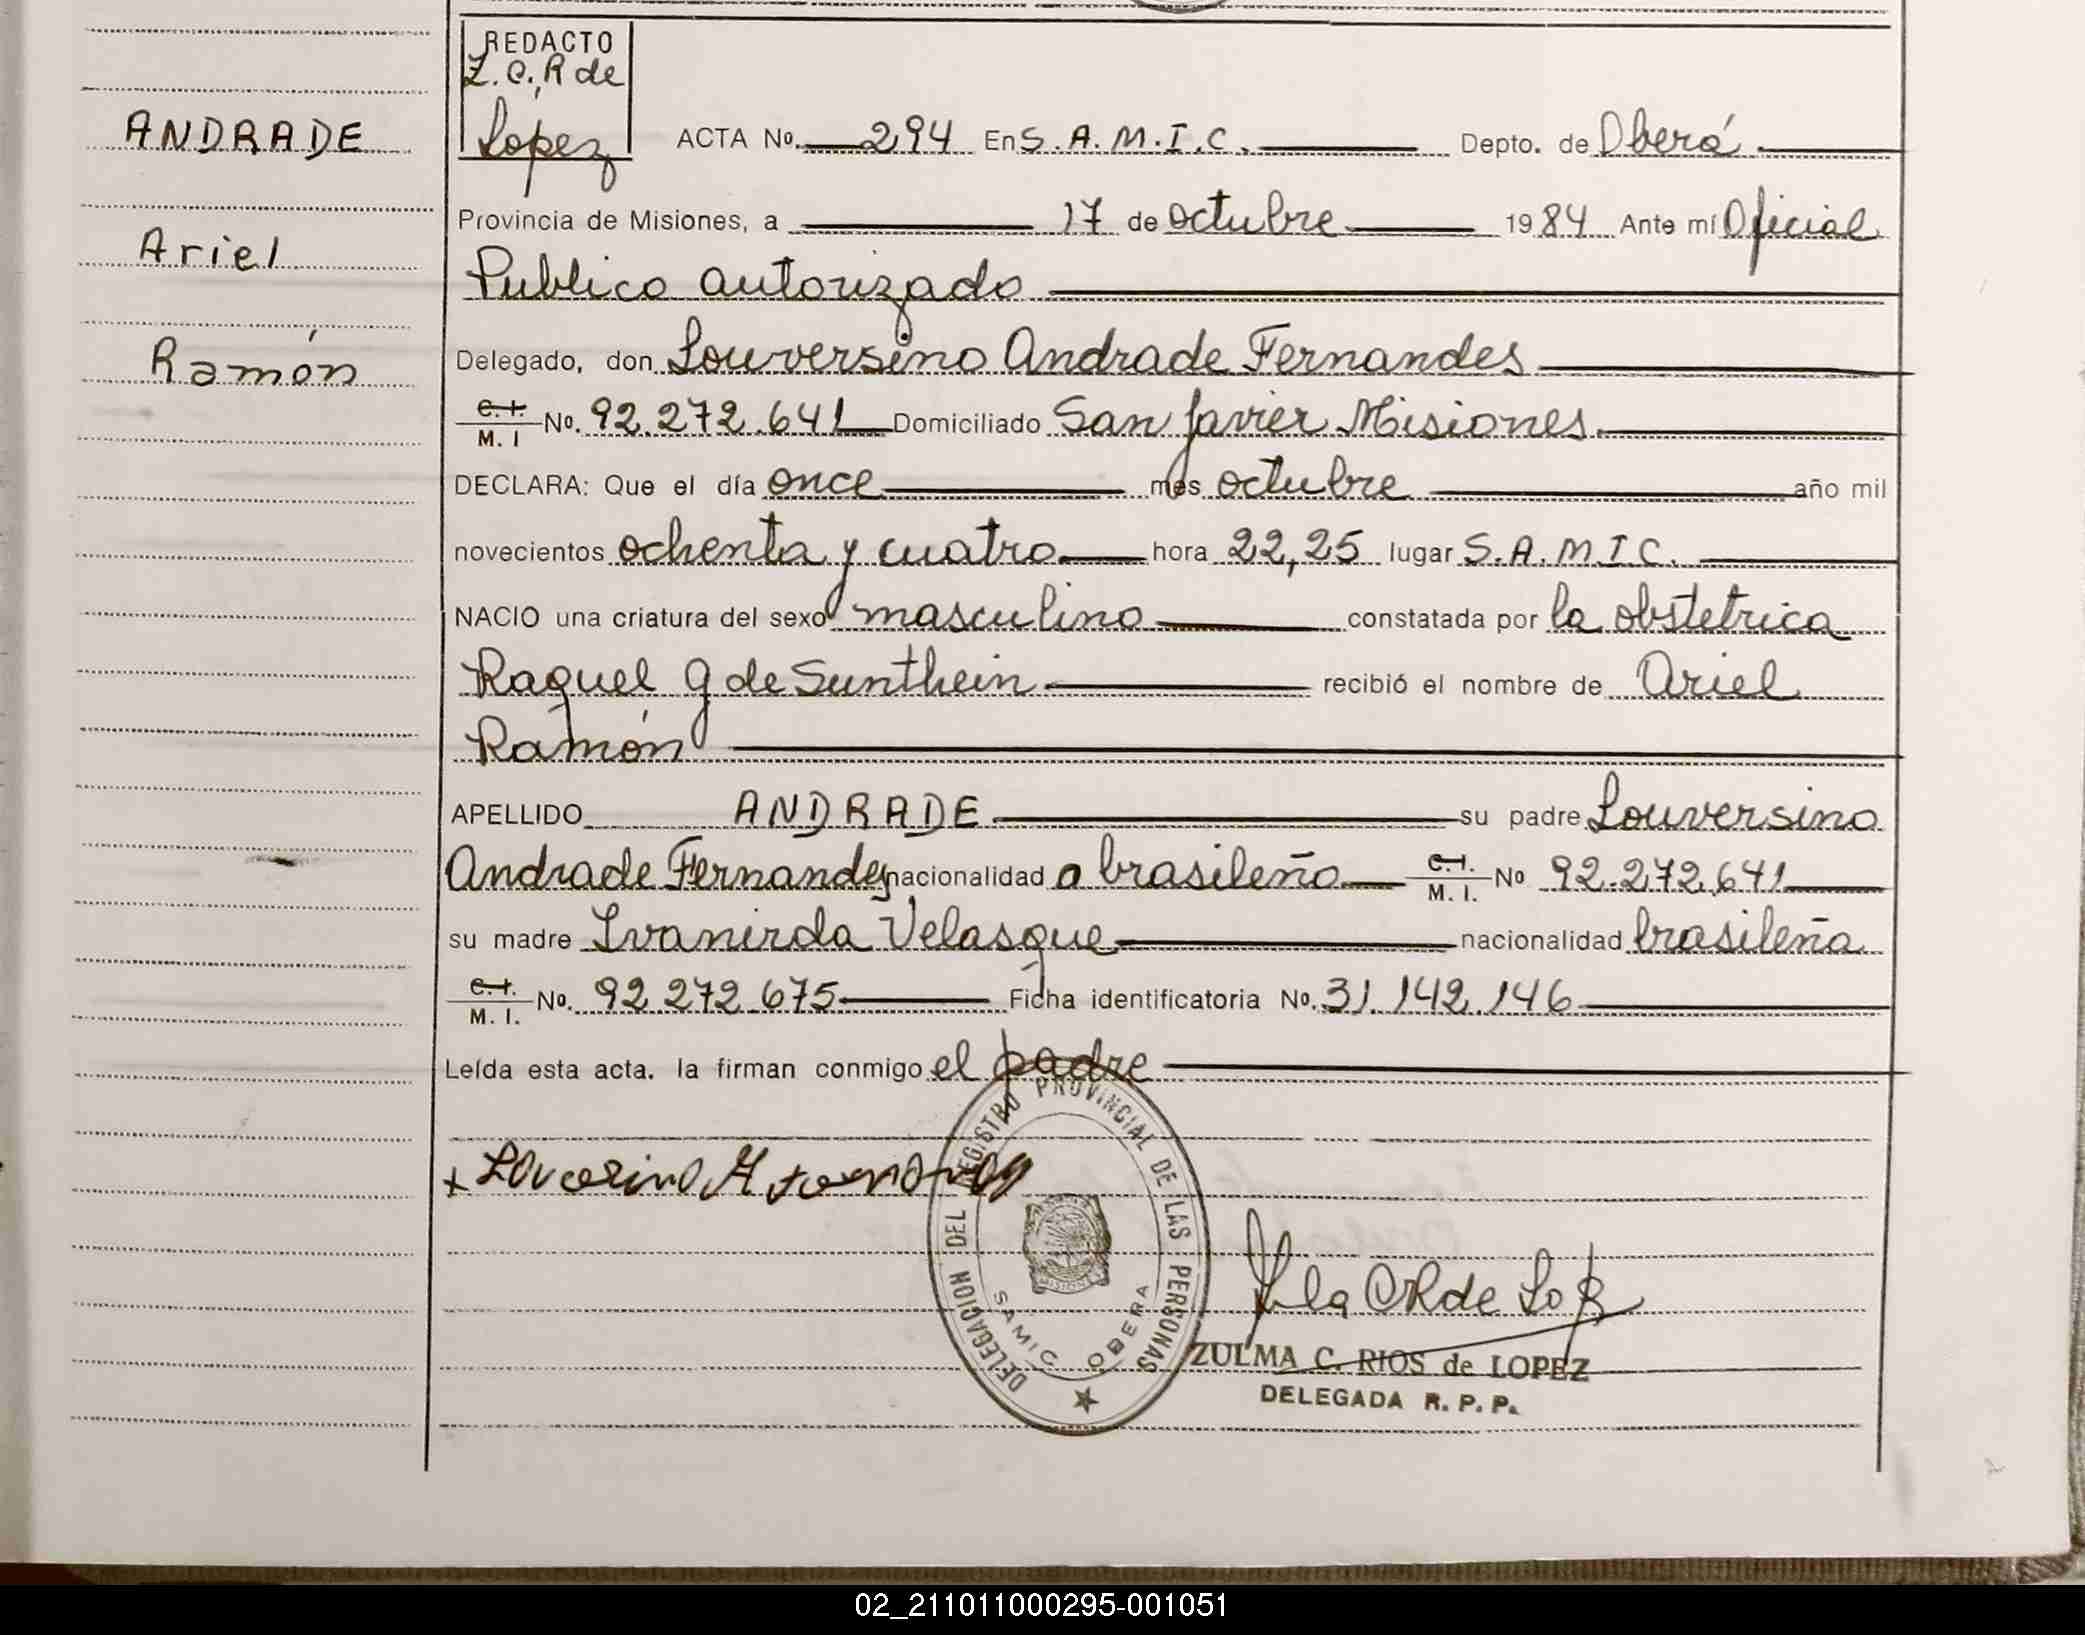 REDACTO
Z. C, R de
Lopez
ANDRADE
Ariel
Ramón
ACTA No. 294 En S. A. M. I. C. Depto. de Oberá
Provincia de Misiones, a 17 de octubre 1984 Ante mí Oficial
Publico autorizado
Delegado, don Louversino Andrade Fernandes
C. I. M. I No. 92.272.641 Domiciliado San Javier Misiones.
DECLARA: Que el día once mes octubre año mil
novecientos ochenta y cuatro hora 22,25 lugar S. A. M. I. C.
NACIO una criatura del sexo masculino constatada por la obstetrica
Raquel G de Sunthein recibió el nombre de Ariel
Ramón
APELLIDO ANDRADE su padre Louversino
Andrade Fernandes nacionalidad brasileño C. I. M. I. No 92.272.641
su madre Ivanirda Velasque nacionalidad brasileña
C. I. M. I. No. 92.272.675 Ficha identificatoria No. 31.142.146
Leída esta acta. la firman conmigo el padre
DELEGACION DEL REGISTRO PROVINCIAL DE LAS PERSONAS
MISIONES
SAMIC OBERA
ZULMA C. RIOS de LOPEZ
DELEGADA R. P. P.
02_211011000295-001051